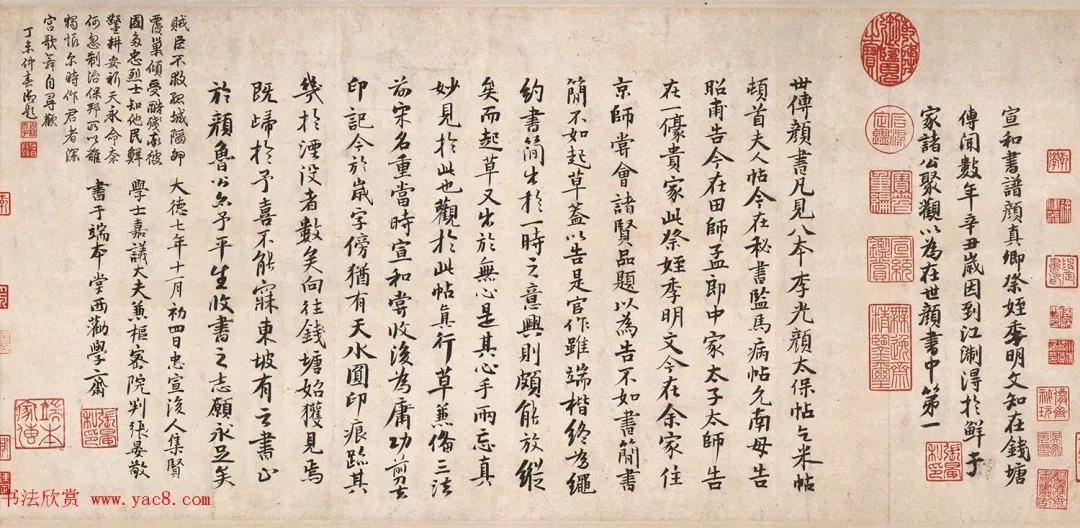 宣和書譜顏真卿祭姪季明文知在錢塘
傳聞數年辛丑歲因到江浙得於鮮于
家諸公聚觀以為在世顏書中第一
世傳顏書凡見八本李光顏太保帖乞米帖
頓首夫人帖今在秘書監馬病帖允南母告
昭甫告今在田師孟郎中家太子太師告
在一豪貴家此祭姪季明文今在余家住
京師嘗會諸賢品題以為告不如書簡書
簡不如起草蓋以告是官作雖端楷終為繩
約書簡出於一時之意興則頗能放縱
矣而起草又出於無心是其心手兩忘真
妙見於此也觀於此帖真行草兼備三法
前宋名重當時宣和嘗收後為庸功剪去
印記今於歲字傍猶有天水圓印痕跡其
幾於湮没者數矣向往錢塘始獲見焉
既歸於予喜不能寐東坡有云書止
於顏魯公亦予平生收書之志願永足矣
大德七年十一月初四日忠宣後人集賢
學士嘉議大夫兼樞密院判張晏敬
書于端本堂西勸學之齋
賊臣不救孤城陷卵
覆巢傾受酷殘彼
國多忠烈士知他民解
鑿耕安祈天永命奈
何忽制治保邦所以難
獨恨尔時作君者深
宮歌舞自尋歡
丁未仲春御題
书法欣赏 www.yac8.com